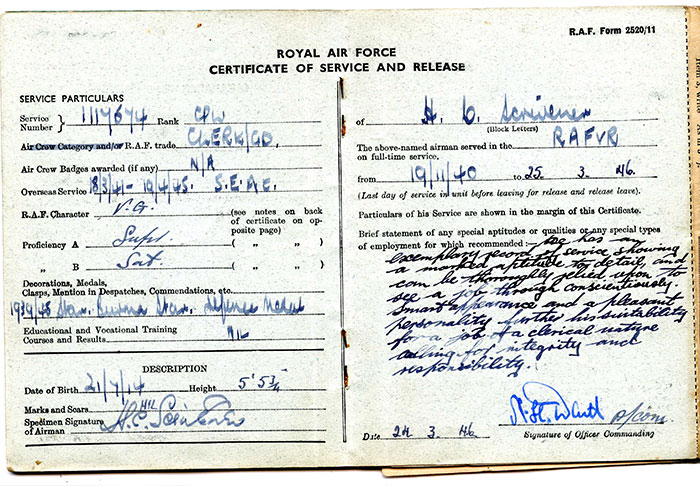 R.A.F. Form 2520/11
ROYAL AIR FORCE
CERTIFICATE OF SERVICE AND RELEASE
SERVICE PARTICULARS
Service Number } 1117674 Rank CPL
Air Crew Category and/or R.A.F. trade CLERK/GD
Air Crew Badges awarded (if any) N/A
Overseas Service 8/3/41 - 19/4/45. S.E.A.E.
R.A.F. Character V.G. (see notes on back of certificate on opposite page)
Proficiency A Supr. ( " " )
" B Sat. ( " " )
Decorations, Medals,
Clasps, Mention in Despatches, Commendations, etc.
1939/45 Star. Burma Star. Defence Medal
Educational and Vocational Training
Courses and Results NIL
DESCRIPTION
Date of Birth 21/7/14 Height 5' 5¾"
Marks and Scars NIL
Specimen Signature
of Airman H.C.
of H. C. Scrivener
(Block Letters)
The above-named airman served in the RAFVR
on full-time service.
from 19/11/40 to 25. 3. 46.
(Last day of service in unit before leaving for release and release leave).
Particulars of his Service are shown in the margin of this Certificate.
Brief statement of any special aptitudes or qualities or any special types
of employment for which recommended :— He has an
exemplary record of service showing
a marked aptitude to detail and
can be thoroughly relied upon to
see a job through conscientiously.
Smart appearance and a pleasant
personality further his suitability
for a job of a clerical nature
calling for integrity and
responsibility.
Date 24. 3. 46
Signature of Officer Commanding